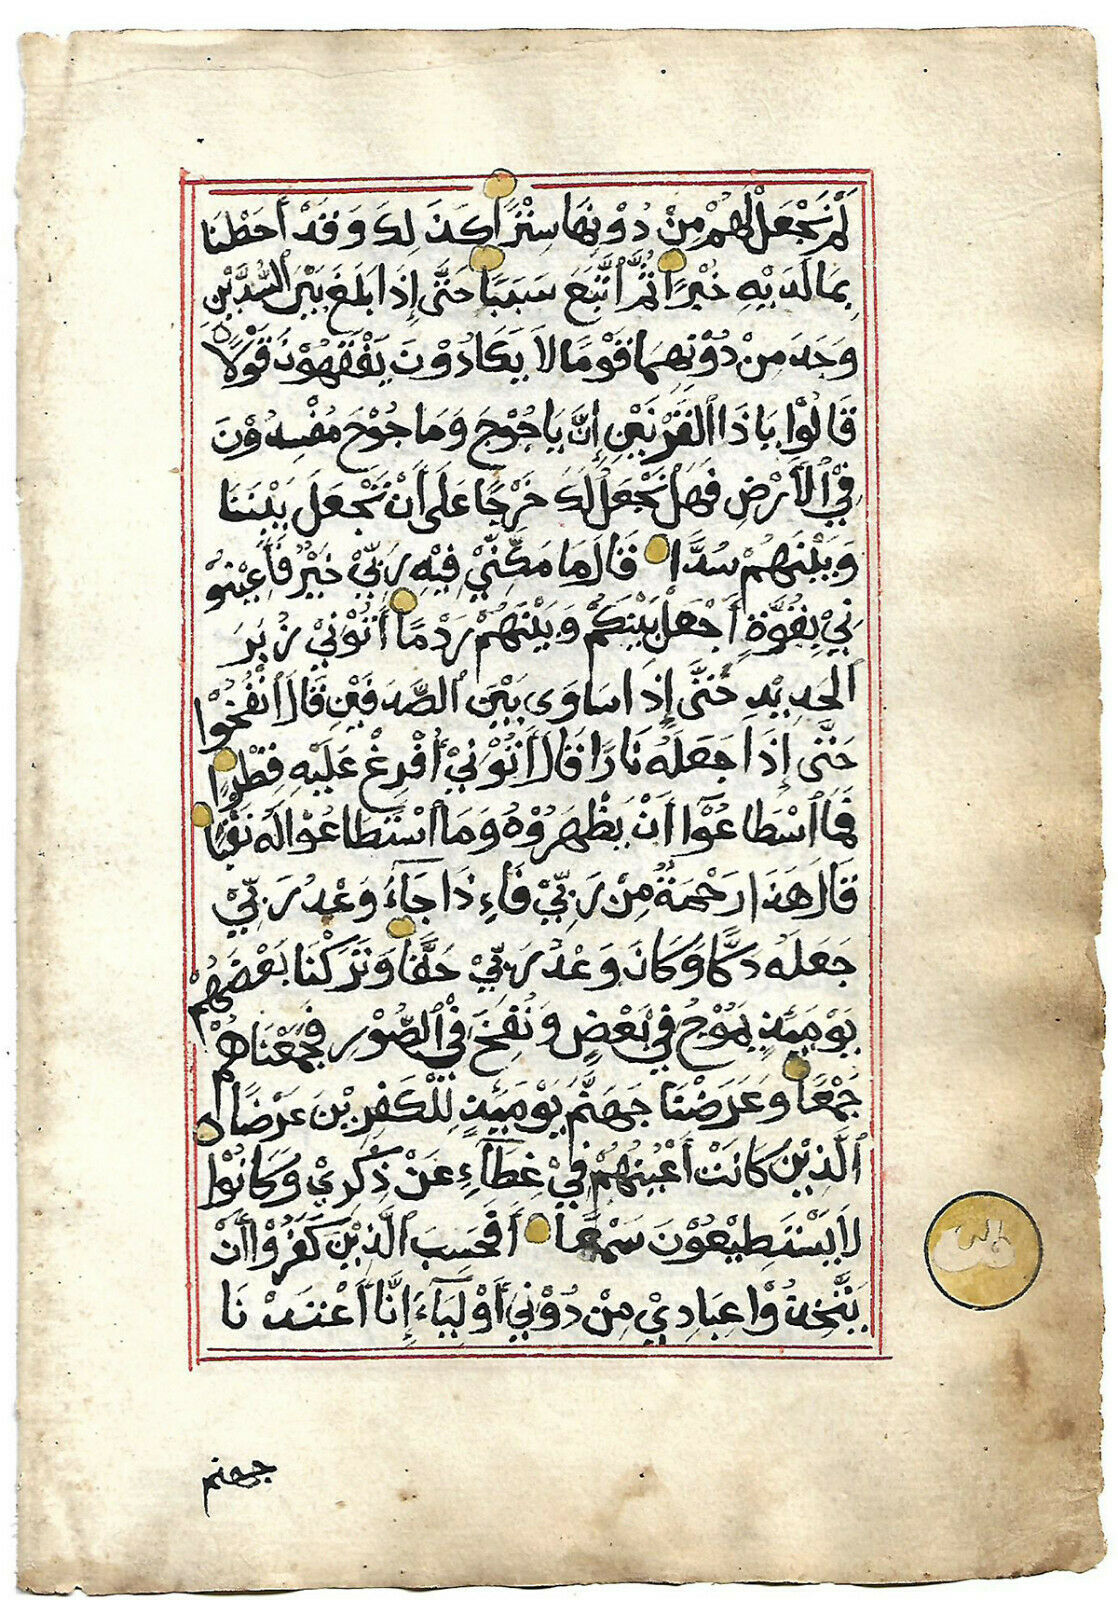 لَمْ نَجْعَلْ لَهُمْ مِنْ دُوْنِهَا سِتْرًا كَذَلِكَ وَقَدْ أَحَطْنَا
بِمَا لَدَيْهِ خُبْرًا ثُمَّ اتَّبَعَ سَبَبًا حَتَّى إِذَا بَلَغَ بَيْنَ السُّدَّيْنِ
وَجَدَ مِنْ دُوْنِهِمَا قَوْمًا لَا يَكَادُوْنَ يَفْقَهُوْنَ قَوْلًا
قَالُوْا يَاذَا الْقَرْنَيْنِ إِنَّ يَاجُوْجَ وَمَاجُوْجَ مُفْسِدُوْنَ
فِيْ الْأَرْضِ فَهَلْ نَجْعَلُ لَكَ خَرْجًا عَلَى أَنْ تَجْعَلَ بَيْنَنَا
وَبَيْنَهُمْ سُدًّا قَالَ مَا مَكَّنِّيْ فِيْهِ رَبِّيْ خَيْرٌ فَأَعِيْنُوْ
نِيْ بِقُوَّةٍ أَجْعَلْ بَيْنَكُمْ وَبَيْنَهُمْ رَدْمًا أَتُوْنِيْ زُبَرَ
الْحَدِيْدِ حَتَّى إِذَا سَاوَى بَيْنَ الصَّدَفَيْنِ قَالَ انْفُخُوْا
حَتَّى إِذَا جَعَلَهُ نَارًا قَالَ أَتُوْنِيْ أُفْرِغْ عَلَيْهِ قِطْرًا
فَمَا اسْطَاعُوْآ أَنْ يَظْهَرُوْهُ وَمَا اسْتَطَاعُوْا لَهُ نَقْبًا
قَالَ هَذَا رَحْمَةٌ مِنْ رَبِّيْ فَاءِذَا جَآءَ وَعْدُ رَبِّيْ
جَعَلَهُ دَكًّا وَكَانَ وَعْدُ رَبِّيْ حَقًّا وَتَرَكْنَا بَعْضَهُمْ
يَوْمَئِذٍ يَمُوْجُ فِيْ بَعْضٍ وَنُفِخَ فِيْ الصُّوْرِ فَجَمَعْنَاهُمْ
جَمْعًا وَعَرَضْنَا جَهَنَّمَ يَوْمَئِذٍ لِلْكَفِرِيْنَ عَرْضًا
الَّذِيْنَ كَانَتْ أَعْيُنُهُمْ فِيْ غِطَآءٍ عَنْ ذِكْرِيْ وَكَانُوْا
لَا يَسْتَطِيْعُوْنَ سَمْعًا أَفَحَسِبَ الَّذِيْنَ كَفَرُوْا أَنْ
يَتَّخِذُوْا عِبَادِيْ مِنْ دُوْنِيْ أَوْلِيَآءَ إِنَّا أَعْتَدْنَا
جهنم